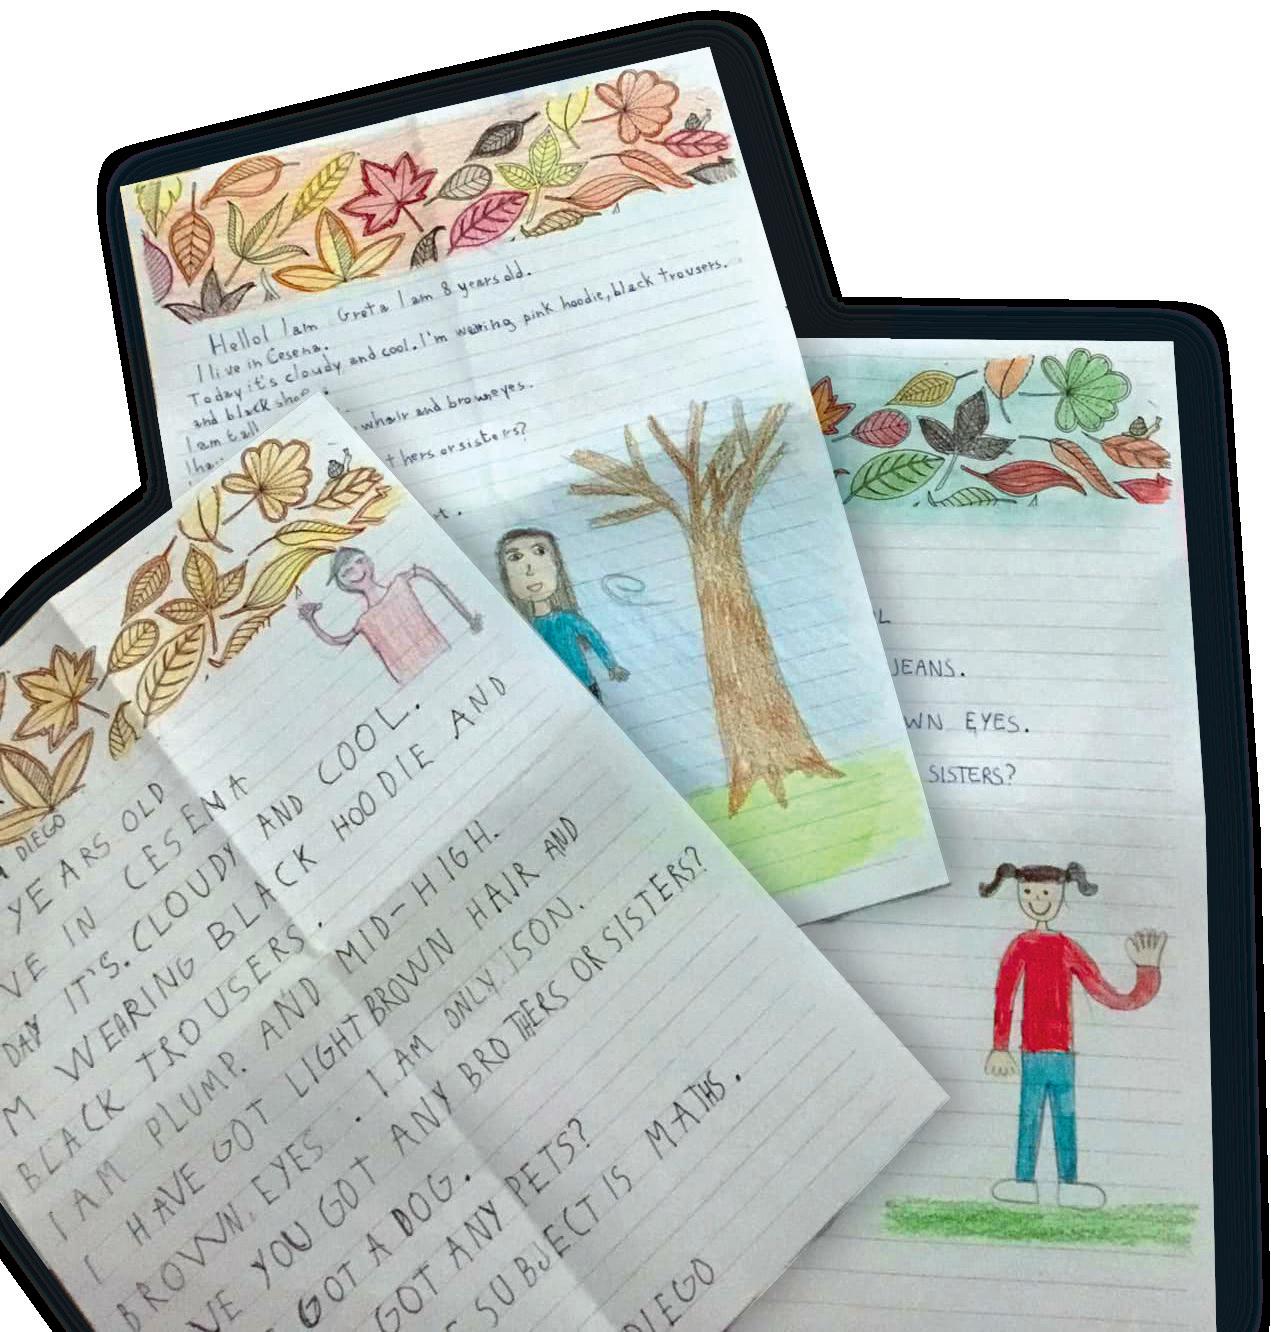 Hello! I am Greta I am 8 years old.
I live in Cesena.
Today it's cloudy and cool. I'm wearing pink hoodie, black trousers.
and black
I am tall
hair and brown eyes.
or sisters?
L
JEANS.
WN EYES.
SISTERS?
DIEGO
YEARS OLD
VE IN CESENA
DAY IT'S. CLOUDY AND COOL.
M WEARING BLACK HOODIE AND
BLACK TROUSERS.
I AM PLUMP. AND MID-HIGH.
I HAVE GOT LIGHT BROWN HAIR AND
BROWN. EYES. I AM ONLY ISON.
VE YOU GOT ANY BROTHERS OR SISTERS?
GOT A DOG.
GOT ANY PETS?
SUBJECT IS MATHS.
DIEGO